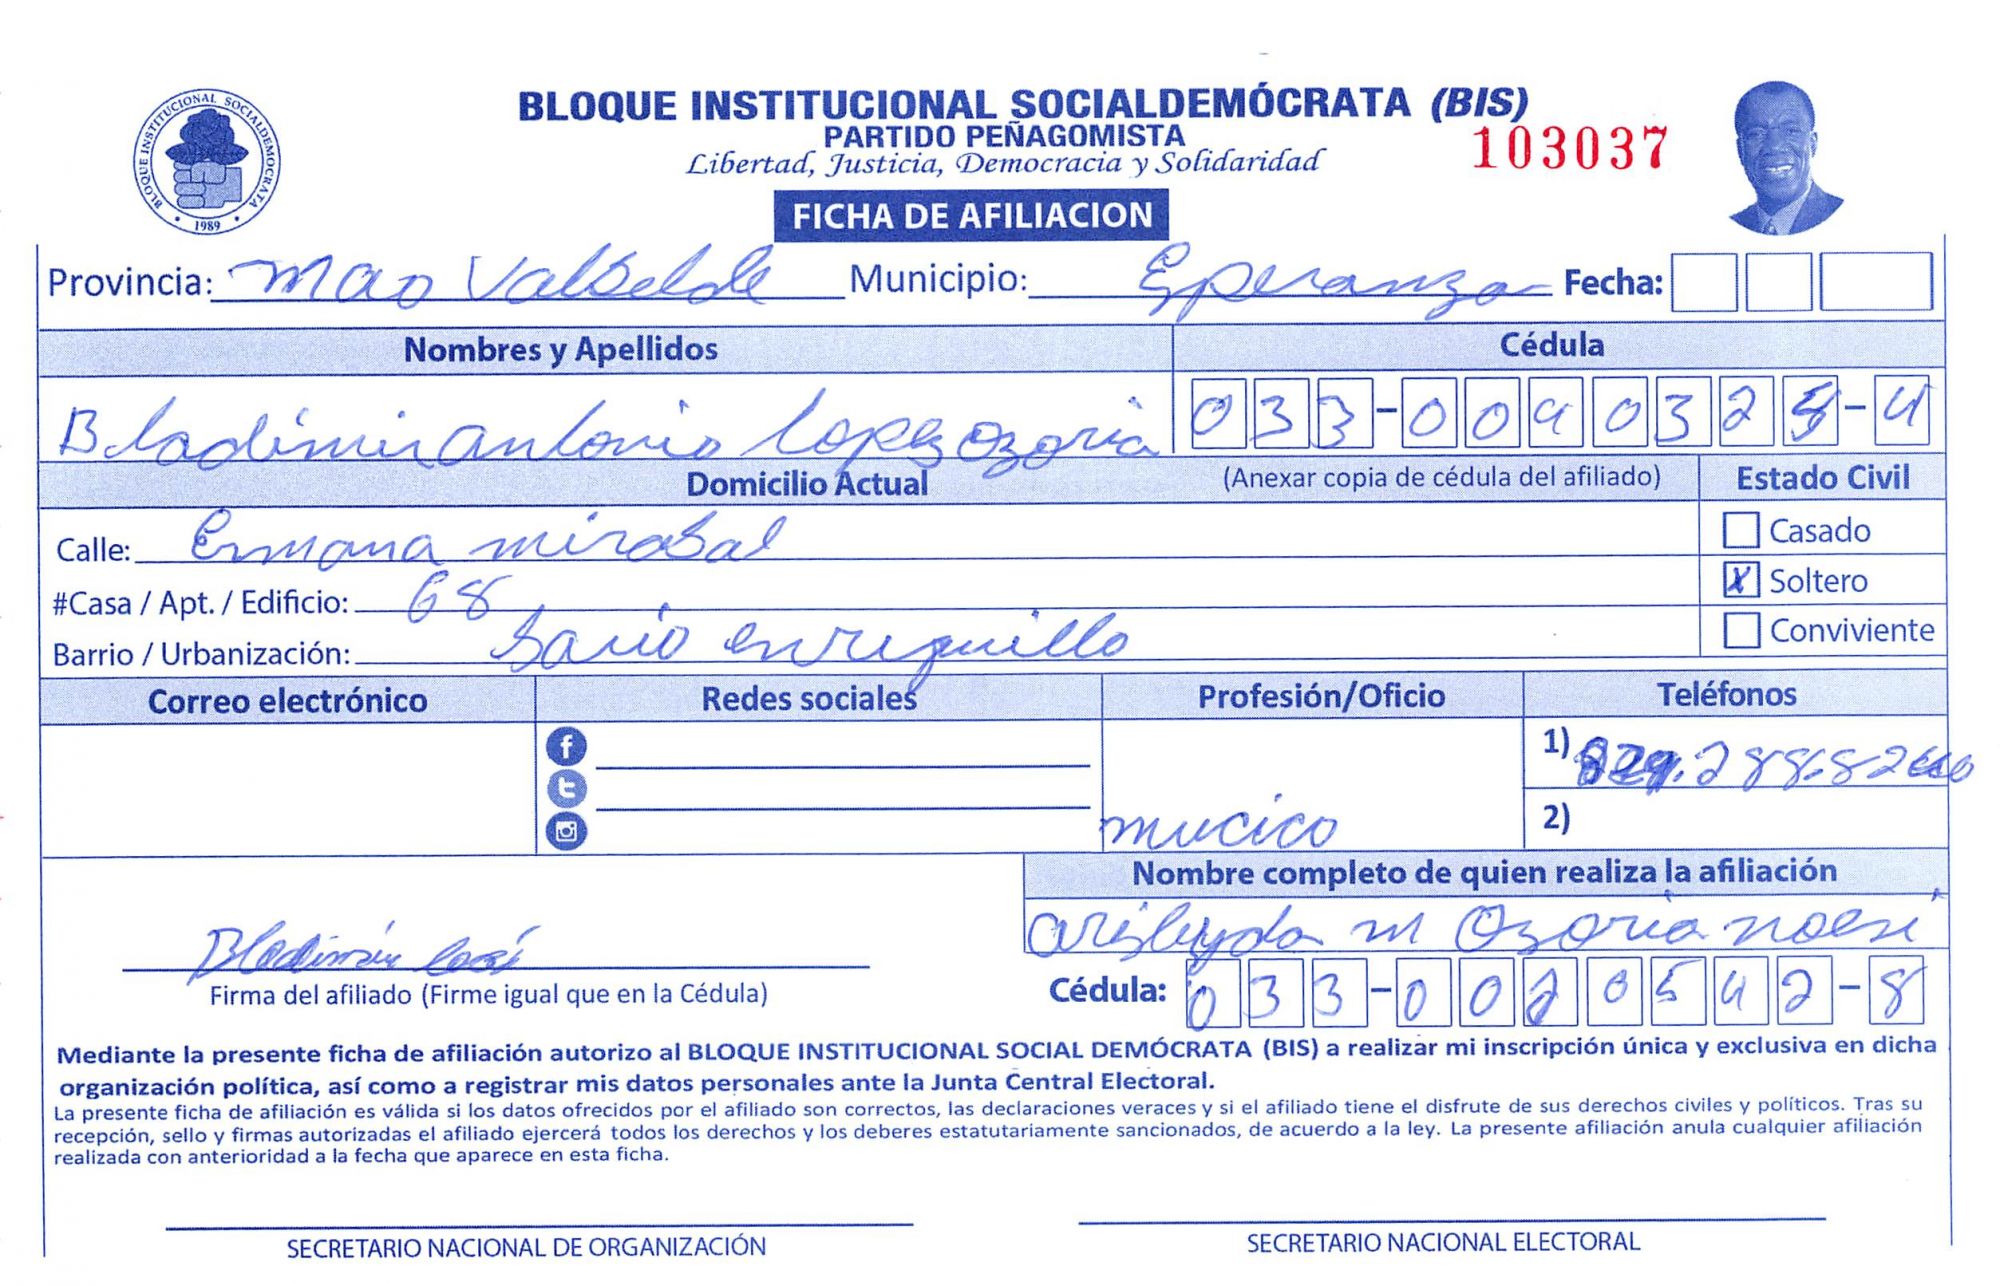 BLOQUE INSTITUCIONAL SOCIALDEMÓCRATA (BIS)
PARTIDO PEÑAGOMISTA
103037
Libertad, Justicia, Democracia y Solidaridad
BLOQUE INSTITUCIONAL SOCIALDEMOCRATA
1989
FICHA DE AFILIACION
Provincia: Mao Valbelde Municipio: Eperanza Fecha:
Nombres y Apellidos Cédula
Bladimir antonio lopez Ozoria 033-0040325-4
Domicilio Actual (Anexar copia de cédula del afiliado) Estado Civil
Calle: Ermana mirabal Casado
#Casa / Apt. / Edificio: 68 X Soltero
Barrio / Urbanización: bario enriquillo Conviviente
Correo electrónico Redes sociales Profesión/Oficio Teléfonos
1) 829.288.82
mucico 2)
Nombre completo de quien realiza la afiliación
arisleyda m Ozoria noesi
Bladimir
Firma del afiliado (Firme igual que en la Cédula) Cédula: 033-0020542-8
Mediante la presente ficha de afiliación autorizo al BLOQUE INSTITUCIONAL SOCIAL DEMÓCRATA (BIS) a realizar mi inscripción única y exclusiva en dicha
organización política, así como a registrar mis datos personales ante la Junta Central Electoral.
La presente ficha de afiliación es válida si los datos ofrecidos por el afiliado son correctos, las declaraciones veraces y si el afiliado tiene el disfrute de sus derechos civiles y políticos. Tras su
recepción, sello y firmas autorizadas el afiliado ejercerá todos los derechos y los deberes estatutariamente sancionados, de acuerdo a la ley. La presente afiliación anula cualquier afiliación
realizada con anterioridad a la fecha que aparece en esta ficha.
SECRETARIO NACIONAL DE ORGANIZACIÓN SECRETARIO NACIONAL ELECTORAL